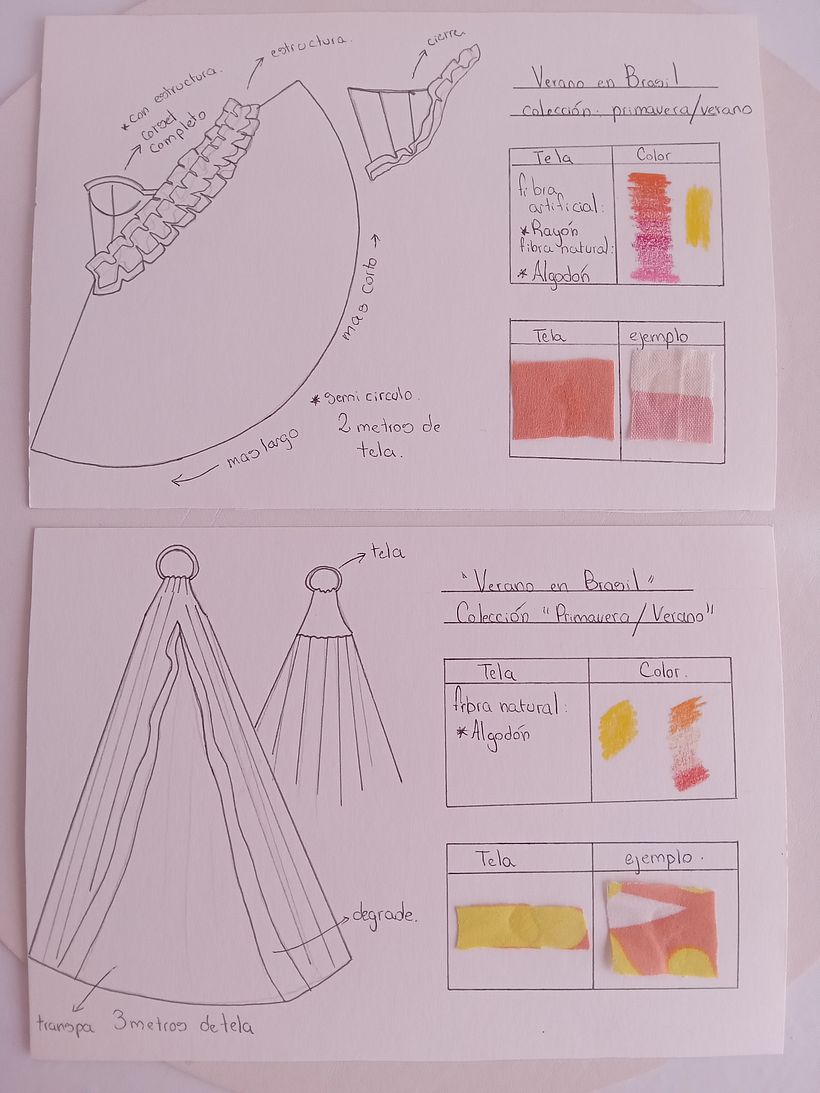 estructura.
cierre
* con estructura.
corset
completo
mas corto
mas largo
* semi circulo.
2 metros de
tela.
Verano en Brasil
colección: primavera/verano
Tela
Color
fibra
artificial:
* Rayón
fibra natural:
* Algodón
Tela
ejemplo
tela
degrade.
transpa 3 metros de tela
"Verano en Brasil"
Colección "Primavera/Verano"
Tela
Color.
fibra natural:
* Algodón
Tela
ejemplo.